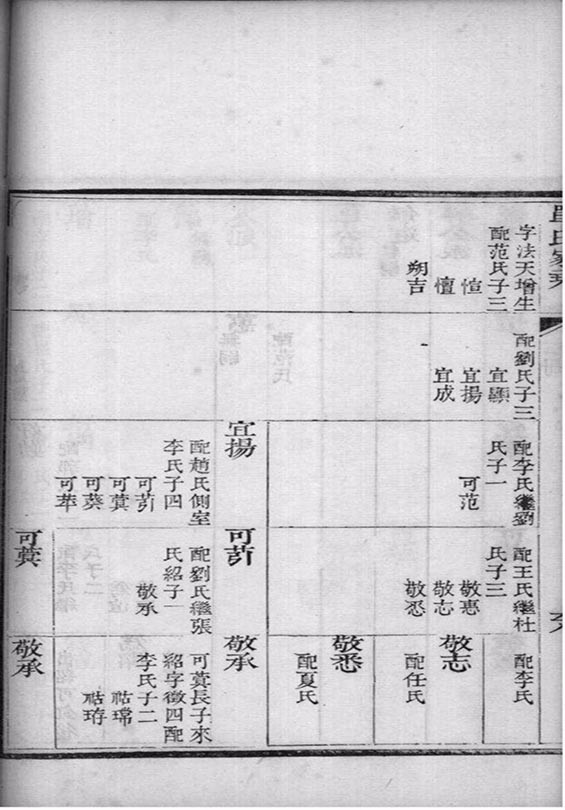 字法天增生
配范氏子三
愷
憻
朔吉
配劉氏子三
宜顯
宜揚
宜成
配李氏繼劉
氏子一
可范
配王氏繼杜
氏子三
敬惠
敬志
敬恐
配李氏
敬志
配任氏
敬悉
配夏氏
宜揚
配趙氏側室
李氏子四
可萕
可蓂
可葵
可苹
可萕
配劉氏繼張
氏紹子一
敬承
敬承
可蓂長子來
紹字徵四配
李氏子二
祜瑺
祜珔
可蓂
敬承